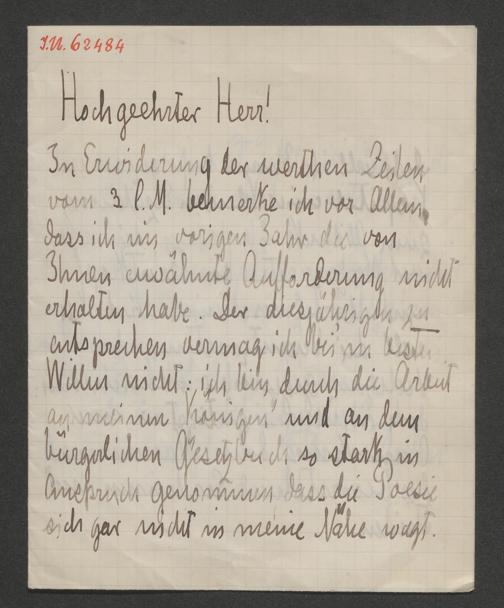 I.N. 62484
Hochgeehrter Herr!
In Erwiderung der werthen Zeilen
vom 3 l.M. bemerke ich vor Allem,
dass ich im vorigen Jahr die von
Ihnen erwähnte Aufforderung nicht
erhalten habe. Der diesjährigen zu
entsprechen vermag ich bei'm besten
Willen nicht; ich bin durch die Arbeit
an meinen "Königen" und an dem
bürgerlichen Gesetzbuch so stark in
Anspruch genommen dass die Poesie
sich gar nicht in meine Nähe wagt.